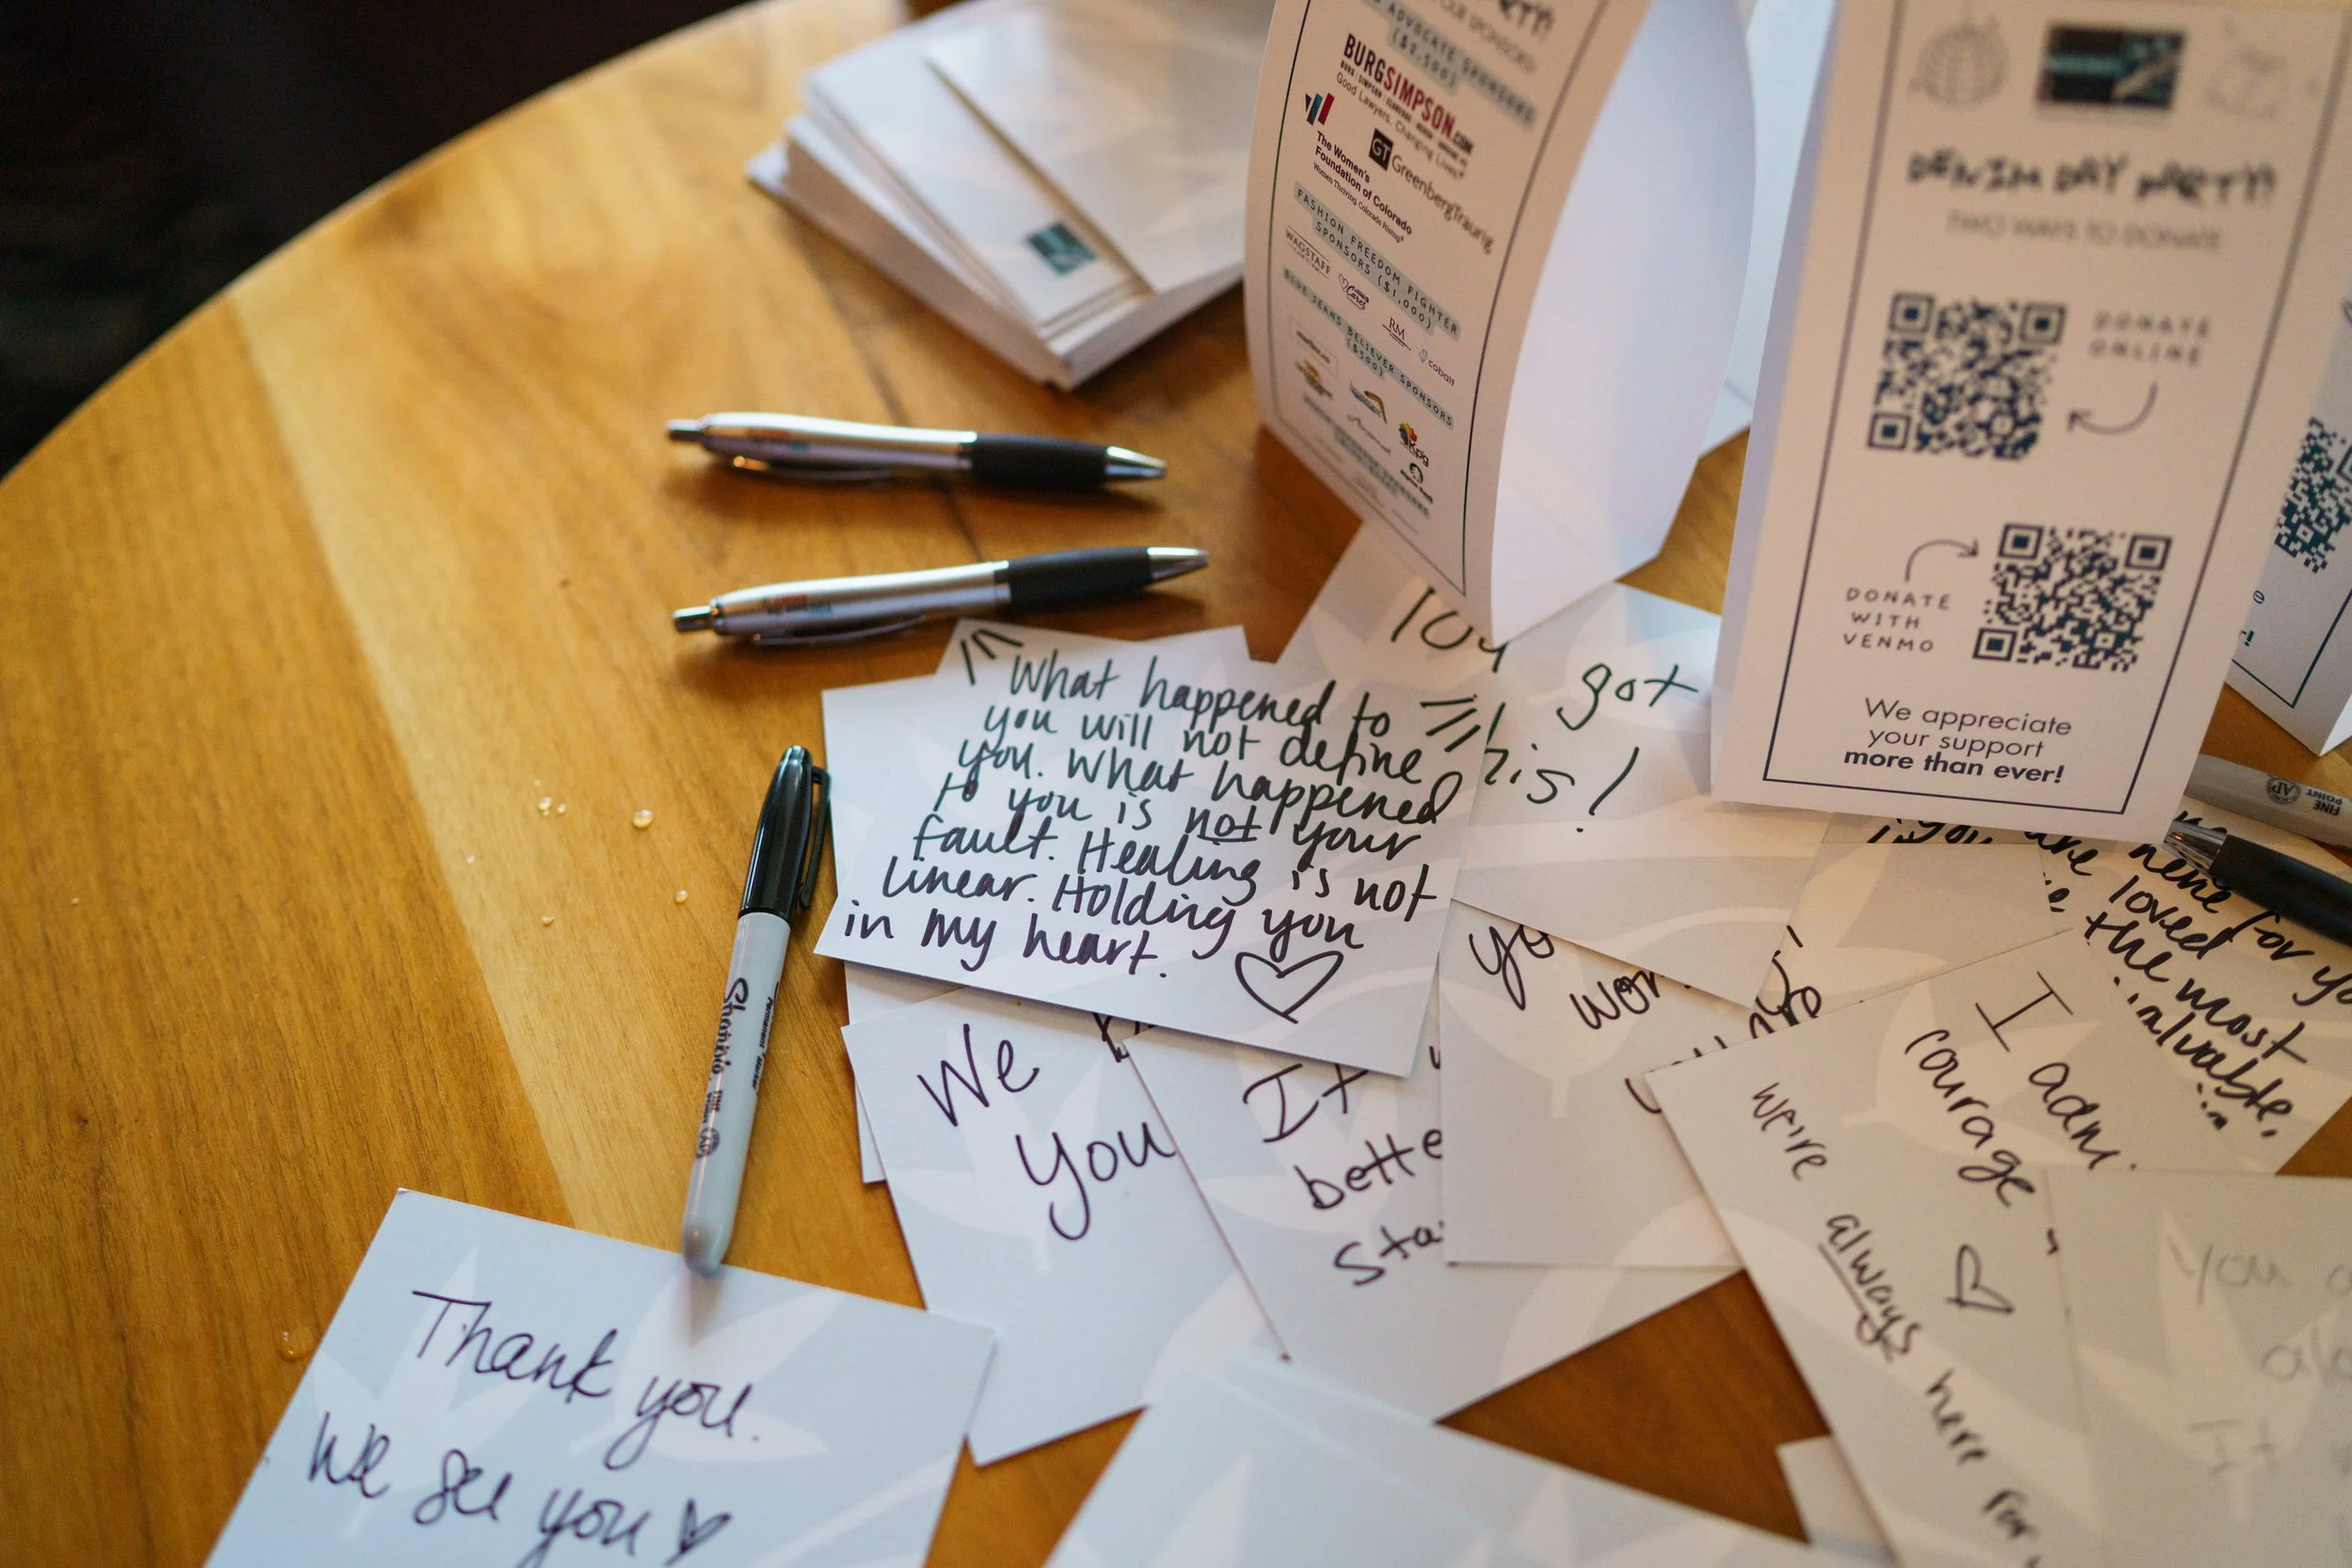 ADVOCATE SPONSORS
($2,500)
BURGSIMPSON.COM
Good Lawyers. Changing Lives.®
The Women's
Foundation of Colorado
Women Thriving. Colorado Rising.®
GT GreenbergTraurig
FASHION FREEDOM FIGHTER
SPONSORS ($1,000)
WAGSTAFF
Cares
RM
cobalt
BLUE JEANS BELIEVER SPONSORS
($500)
kpg
DENIM DAY PARTY!
TWO WAYS TO DONATE
DONATE
ONLINE
DONATE
WITH
VENMO
We appreciate
your support
more than ever!
You got
this!
What happened to
you will not define
you. What happened
to you is not your
fault. Healing is not
linear. Holding you
in my heart.
We
you
It
bette
sta
yo
wor
here for yo
are loved
the most
I adm
courage
we're always here for
You a
alo
It
Thank you.
We see you
Sharpie
Permanent Marker
FINE
POINT
AP